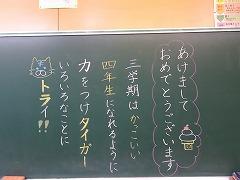 あけまして
おめでとうございます
三学期は かっこいい
四年生になれるように
力をつけタイガー
いろいろなことに
トライ!!